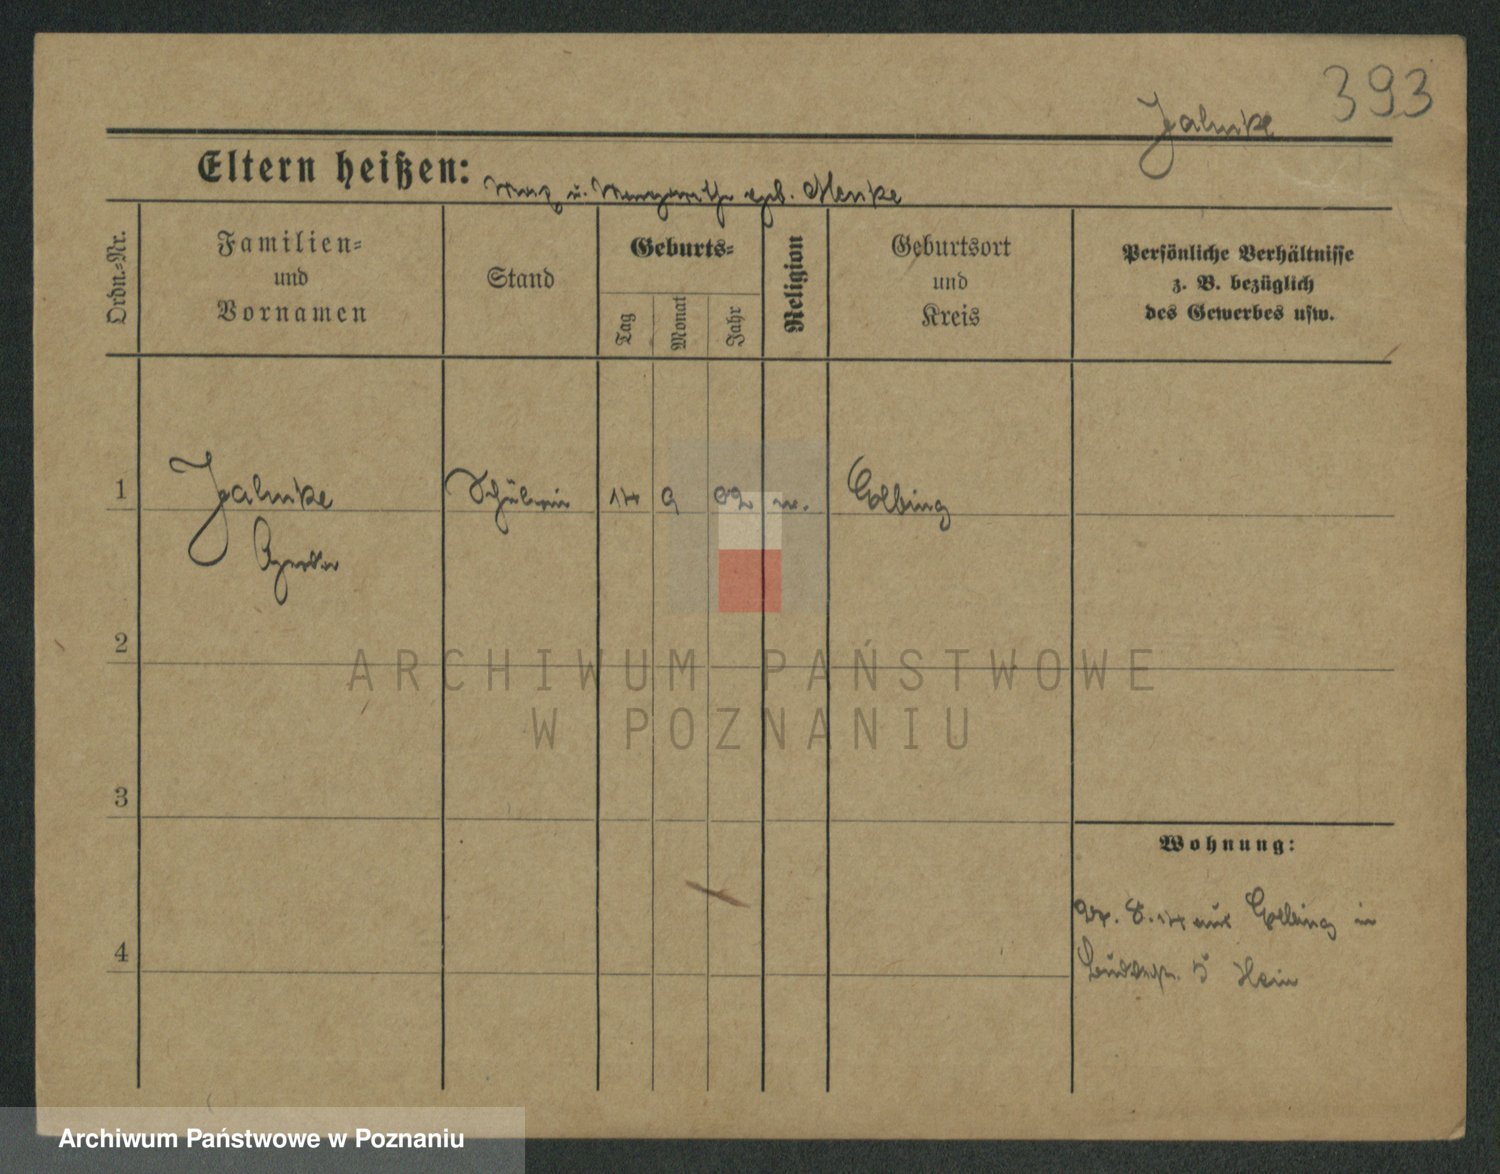 393
Jahnke
Eltern heißen: Max u. Margarethe geb. Henke
Ordn.=Nr.
Familien=
und
Vornamen
Stand
Geburts=
Tag
Monat
Jahr
Religion
Geburtsort
und
Kreis
Persönliche Verhältnisse
z. B. bezüglich
des Gewerbes usw.
1 Jahnke Schülerin 14 9 02 ev. Elbing
2
3
4
Wohnung:
8. 14 aus Elbing in
5
ARCHIWUM PAŃSTWOWE
W POZNANIU
Archiwum Państwowe w Poznaniu